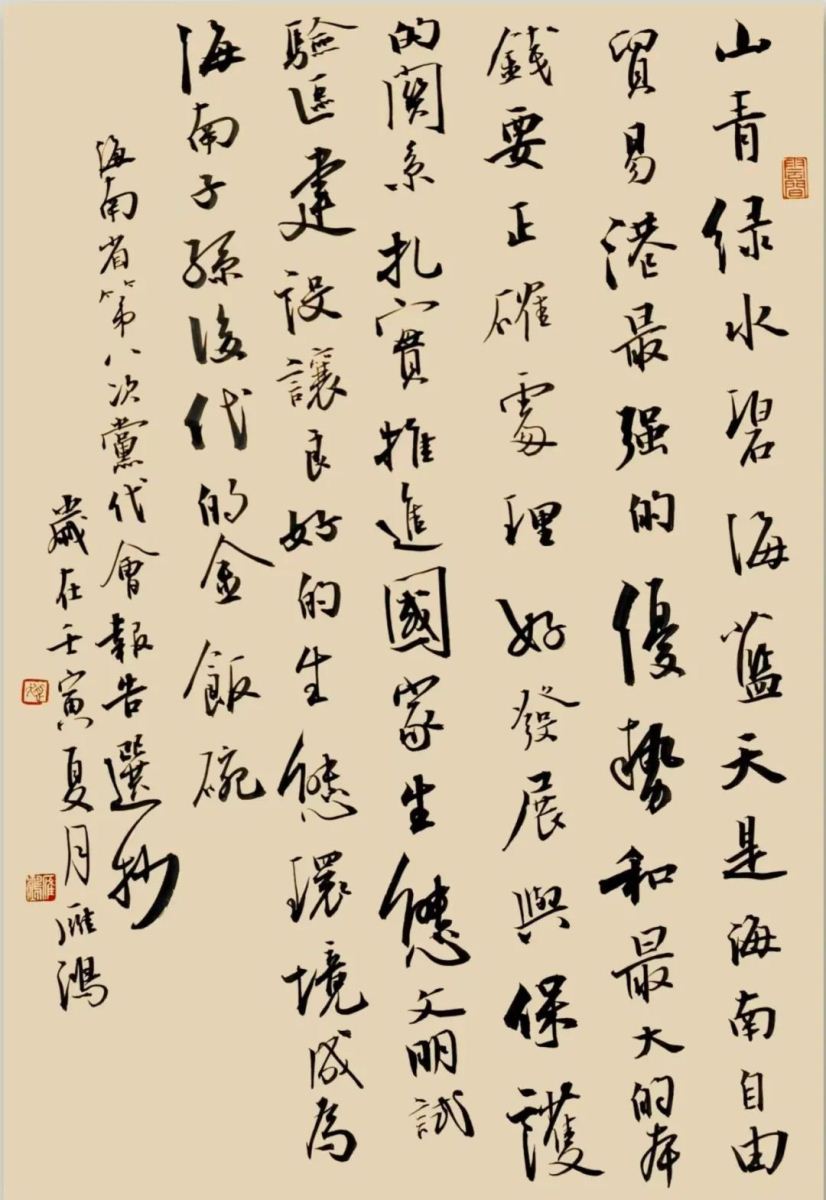 山青绿水碧海蓝天是海南自由
貿易港最强的優勢和最大的本
錢要正確處理好發展與保護
的関系扎實推進國家生態文明試
驗區建设讓良好的生態環境成為
海南子孫後代的金飯碗
海南省第八次黨代會報告選抄
歲在壬寅夏月雁鴻
雁鴻